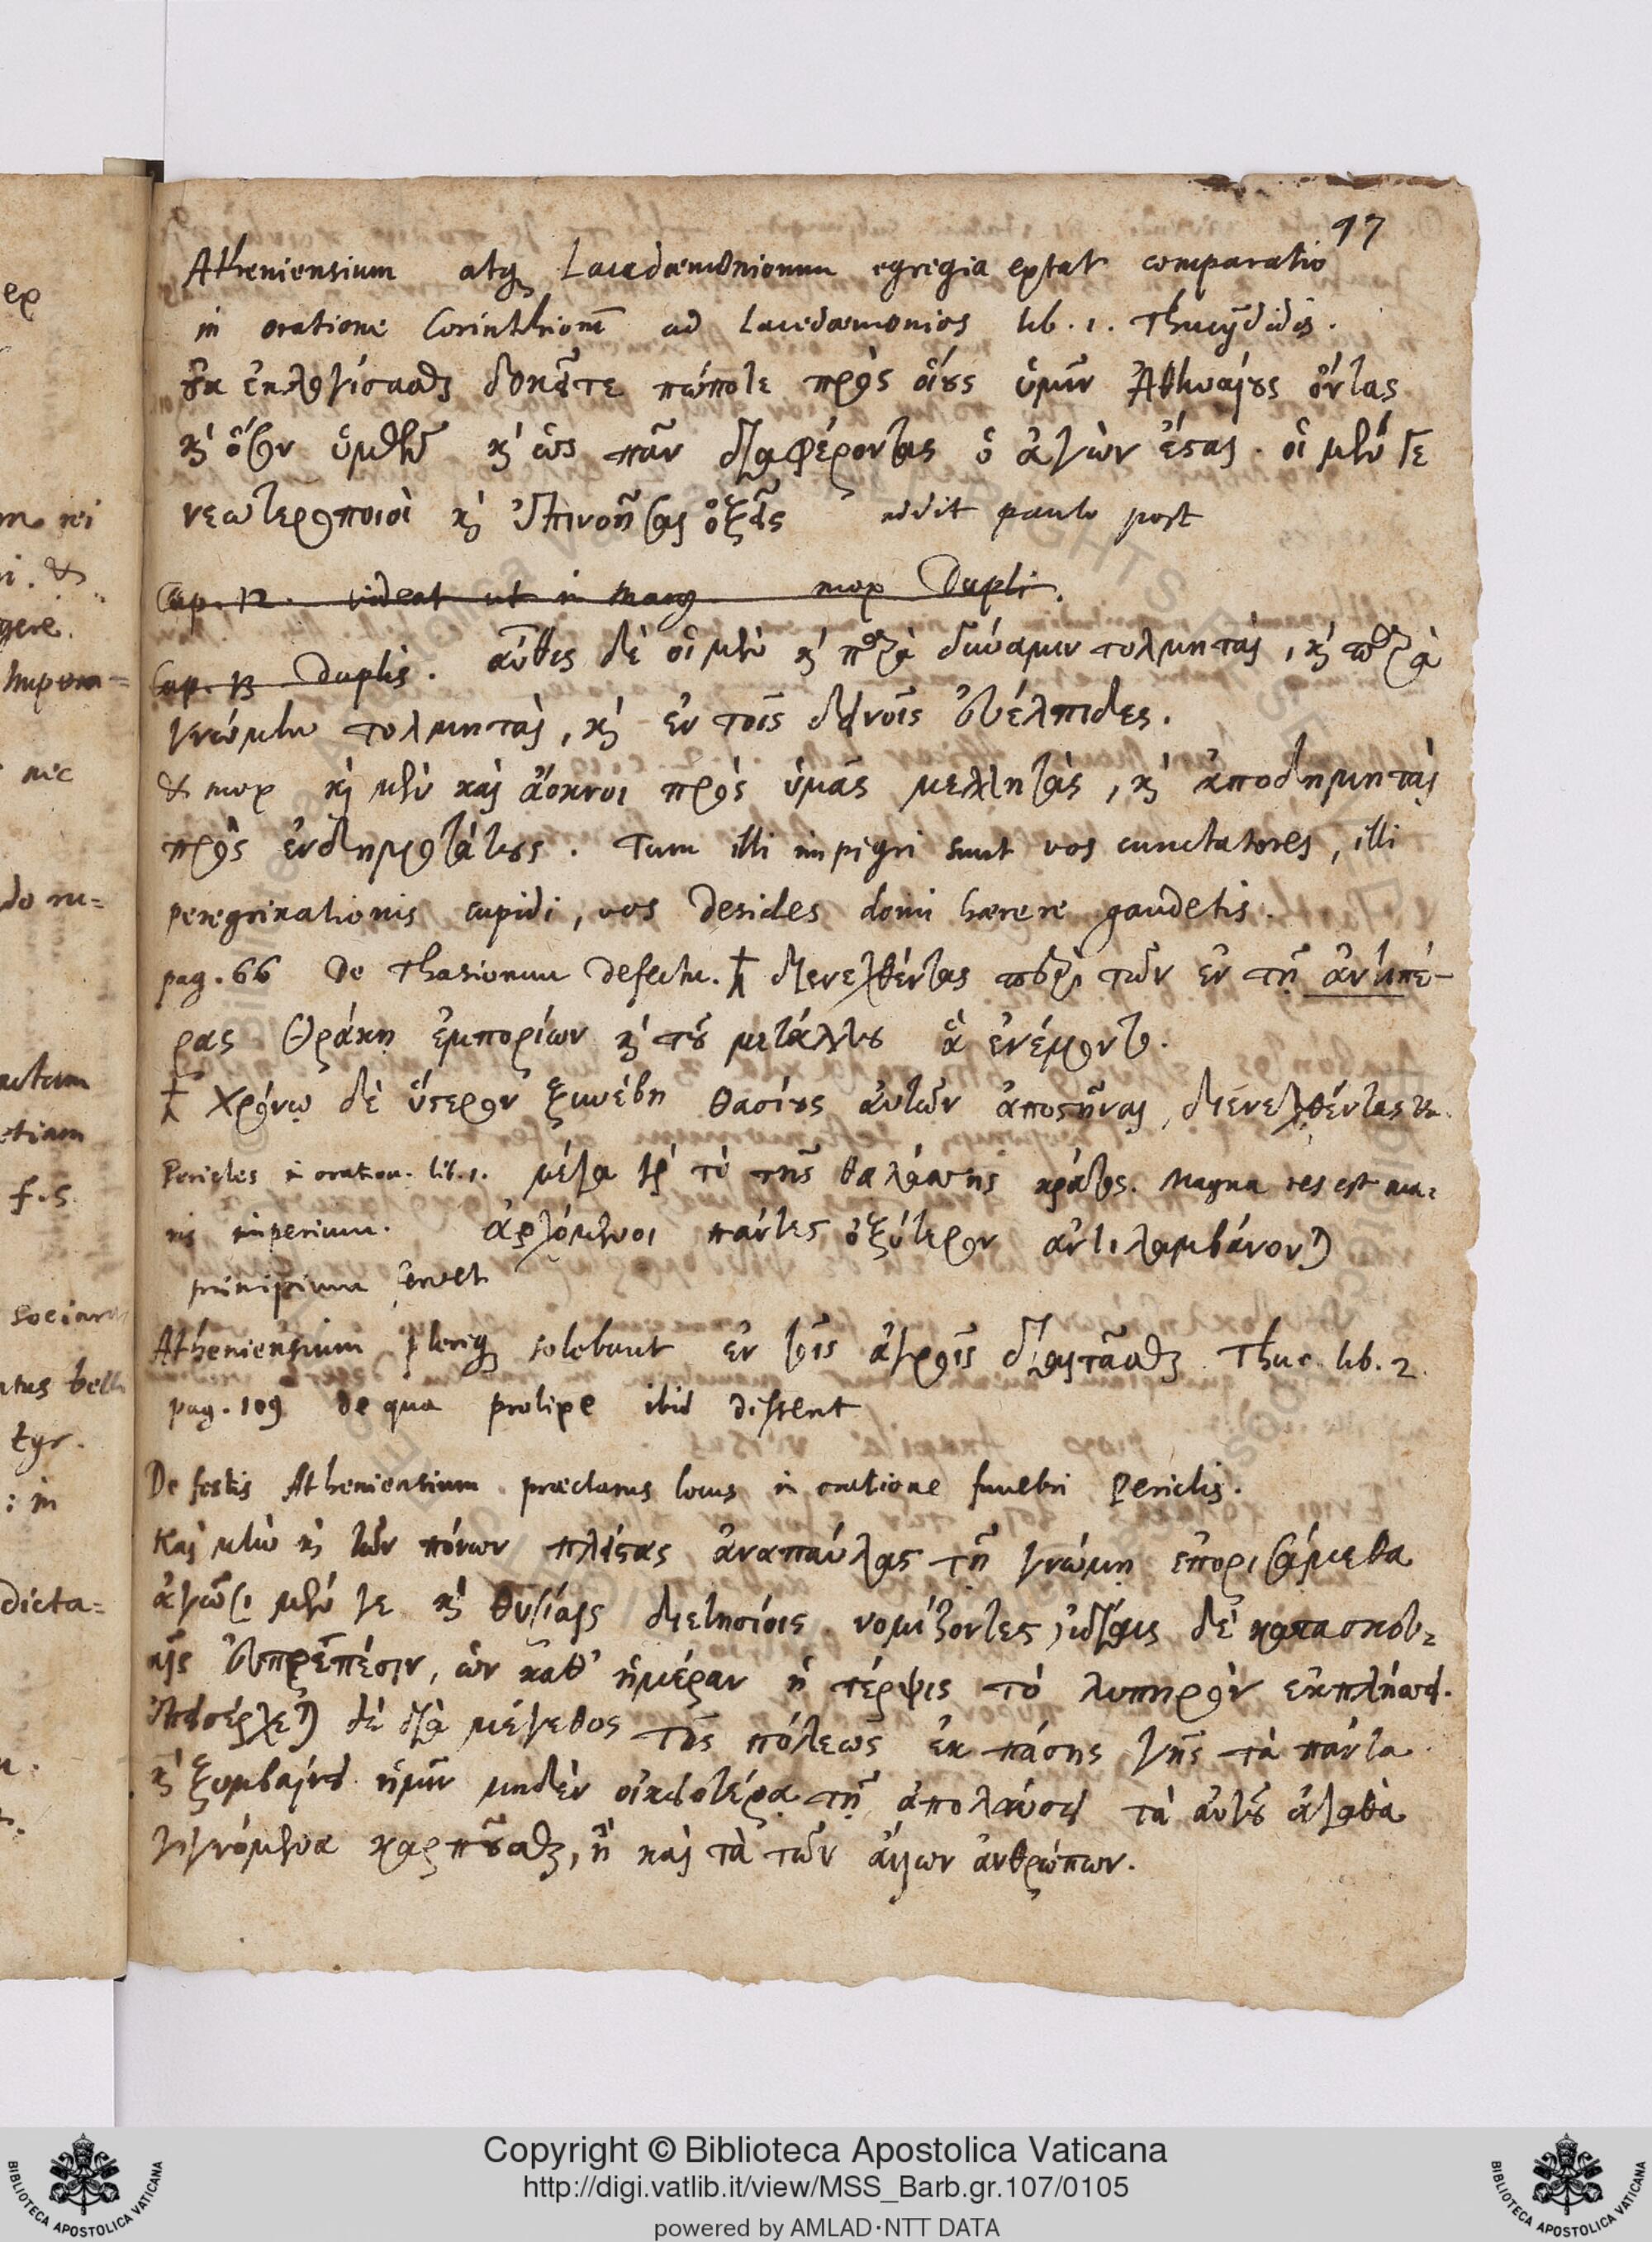 97
Atheniensium atq; Lacedæmoniorum egregia extat comparatio
in oratione Corinthiorū ad Lacedæmonios lib. 1. Thucÿdidis.
οὐκ ἐκλογίσασθαι δοκεῖτε πώποτε πρὸς οἵους ὑμῖν Ἀθηναίους ὄντας
κὶ ὅσον ὑμῶν κὶ ὡς πᾶν διαφέροντας ὁ ἀγὼν ἔσται. οἱ μέν γε
νεωτεροποιοὶ κὶ ἐπινοῆσαι ὀξεῖς addit paulo post
Cap. 12. videat ut in marg mox Dupli.
Cap. 13 Duplis. αὖθις δὲ οἱ μὲν κὶ παρὰ δύναμιν τολμηταὶ, κὶ παρὰ
γνώμην τολμηταὶ, κὶ ἐν τοῖς δεινοῖς εὐέλπιδες.
& mox κὶ μὲν καὶ ἄοκνοι πρὸς ὑμᾶς μελλητὰς, κὶ ἀποδημηταὶ
πρὸς ἐνδημοτάτους. Tum illi impigri sunt vos cunctatores, illi
peregrinationis cupidi, vos desides domi hærere gaudetis.
pag. 66 De Thasiorum defectu. διενεχθέντας περὶ τῶν ἐν τῇ ἀντιπέ-
ρας Θράκῃ ἐμπορίων κὶ τοῦ μετάλλου ἃ ἐνέμοντο.
Χρόνῳ δὲ ὕστερον ξυνέβη Θασίους αὐτῶν ἀποστῆναι, διενεχθέντας
Pericles in oration. lib. 1. μέγα γὰρ τὸ τῆς θαλάσσης κράτος. Magna res est ma=
ris imperium. ἀρχόμενοι πάντες ὀξύτερον ἀντιλαμβάνονται
principium fervet
Atheniensium pleriq; solebant ἐν τοῖς ἀγροῖς διαιτᾶσθαι Thuc. lib. 2.
pag. 109 de qua prolixe ibid disserit
De festis Atheniensium præclarus locus in oratione funebri Periclis.
Καὶ μὲν κὶ τῶν πόνων πλείστας ἀναπαύλας τῇ γνώμῃ ἐπορισάμεθα
ἀγῶσι μέν γε κὶ θυσίαις διετησίοις νομίζοντες, ἰδίαις δὲ κατασκευ=
αῖς εὐπρεπέσιν, ὧν καθ' ἡμέραν ἡ τέρψις τὸ λυπηρὸν ἐκπλήσσει.
ἐπεισέρχεται δὲ διὰ μέγεθος τῆς πόλεως ἐκ πάσης γῆς τὰ πάντα
κὶ ξυμβαίνει ἡμῖν μηδὲν οἰκειοτέρᾳ τῇ ἀπολαύσει τὰ αὐτοῦ ἀγαθὰ
γιγνόμενα καρποῦσθαι, ἢ καὶ τὰ τῶν ἄλλων ἀνθρώπων.
Copyright © Biblioteca Apostolica Vaticana
http://digi.vatlib.it/view/MSS_Barb.gr.107/0105
powered by AMLAD·NTT DATA